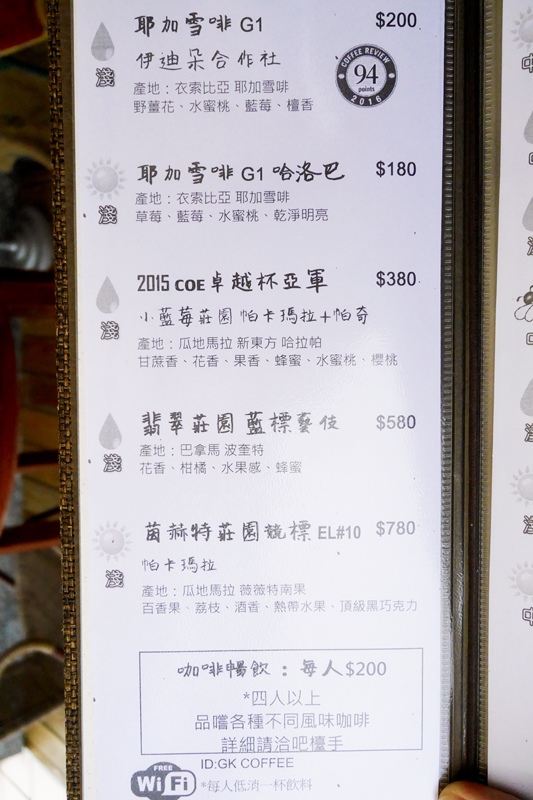 耶加雪啡 G1 $200
淺
伊迪朵合作社
COFFEE REVIEW
94
points
2016
產地：衣索比亞 耶加雪啡
野薑花、水蜜桃、藍莓、檀香
耶加雪啡 G1 哈洛巴 $180
淺
產地：衣索比亞 耶加雪啡
草莓、藍莓、水蜜桃、乾淨明亮
2015 COE 卓越杯亞軍 $380
淺
小藍莓莊園 帕卡瑪拉+帕奇
產地：瓜地馬拉 新東方 哈拉帕
甘蔗香、花香、果香、蜂蜜、水蜜桃、櫻桃
翡翠莊園 藍標藝伎 $580
淺
產地：巴拿馬 波奎特
花香、柑橘、水果感、蜂蜜
茵赫特莊園競標 EL#10 $780
淺
帕卡瑪拉
產地：瓜地馬拉 薇薇特南果
百香果、荔枝、酒香、熱帶水果、頂級黑巧克力
咖啡暢飲：每人$200
*四人以上
品嚐各種不同風味咖啡
詳細請洽吧檯手
FREE
WiFi
ID:GK COFFEE
*每人低消一杯飲料